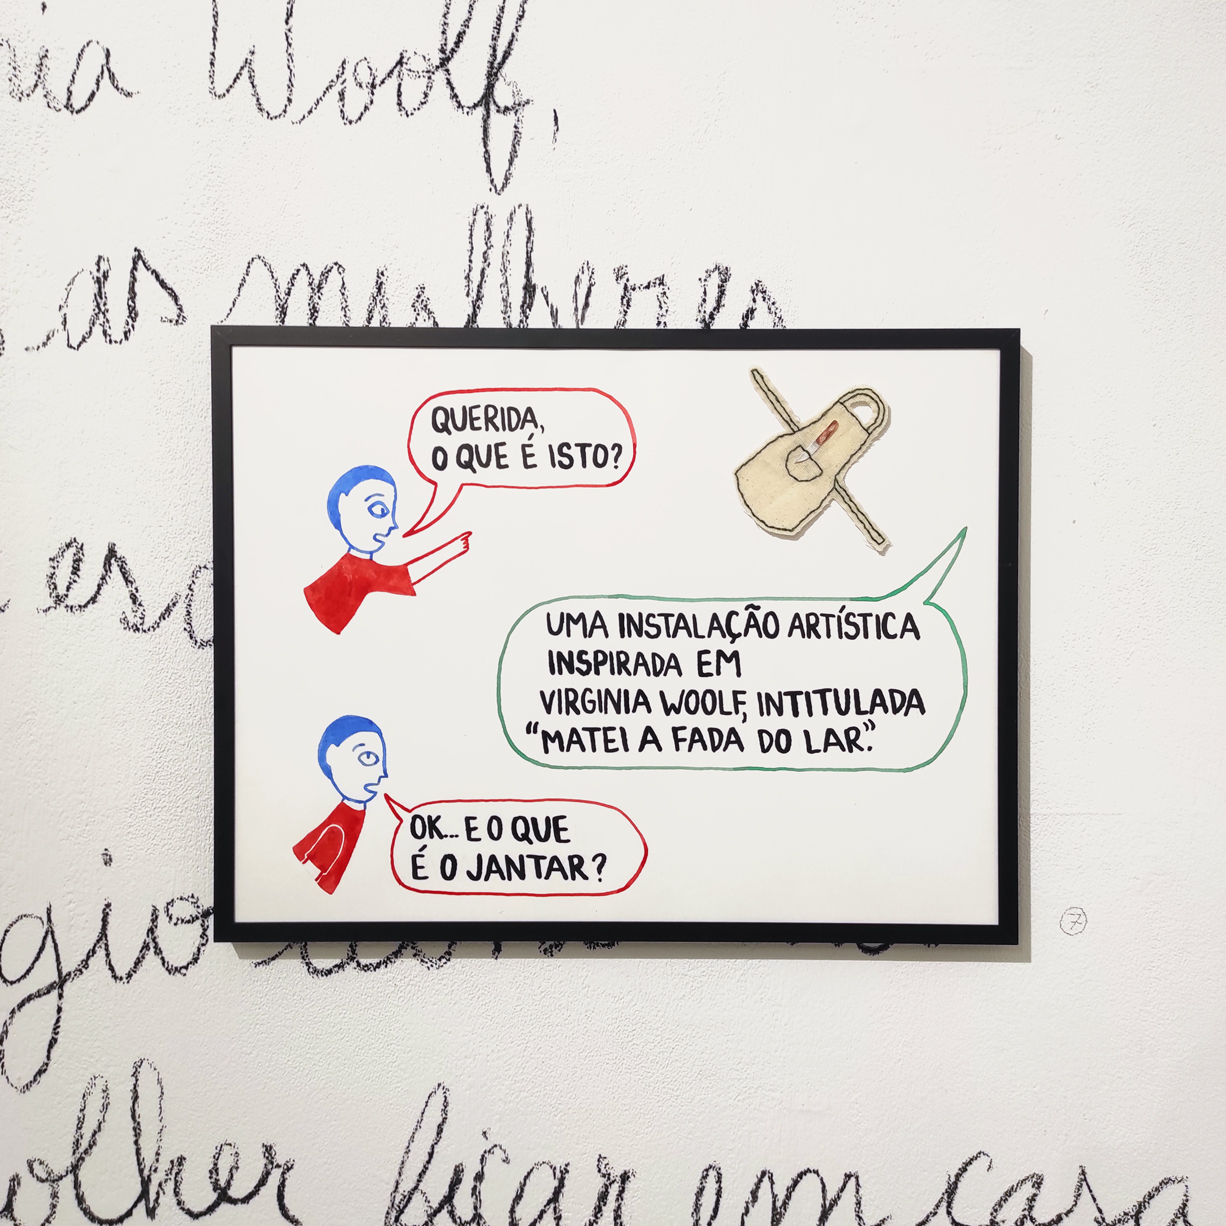 Woolf,
as mulheres
QUERIDA,
O QUE É ISTO?
UMA INSTALAÇÃO ARTÍSTICA
INSPIRADA EM
VIRGINIA WOOLF, INTITULADA
“MATEI A FADA DO LAR.”
OK... E O QUE
É O JANTAR?
7
ficar em casa